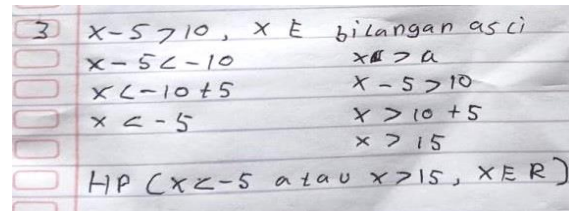 3 x-5>10, x E bilangan asci
x-5<-10 x > a
x<-10+5 x-5>10
x<-5 x>10+5
x>15
HP (x<-5 atau x>15, XER)